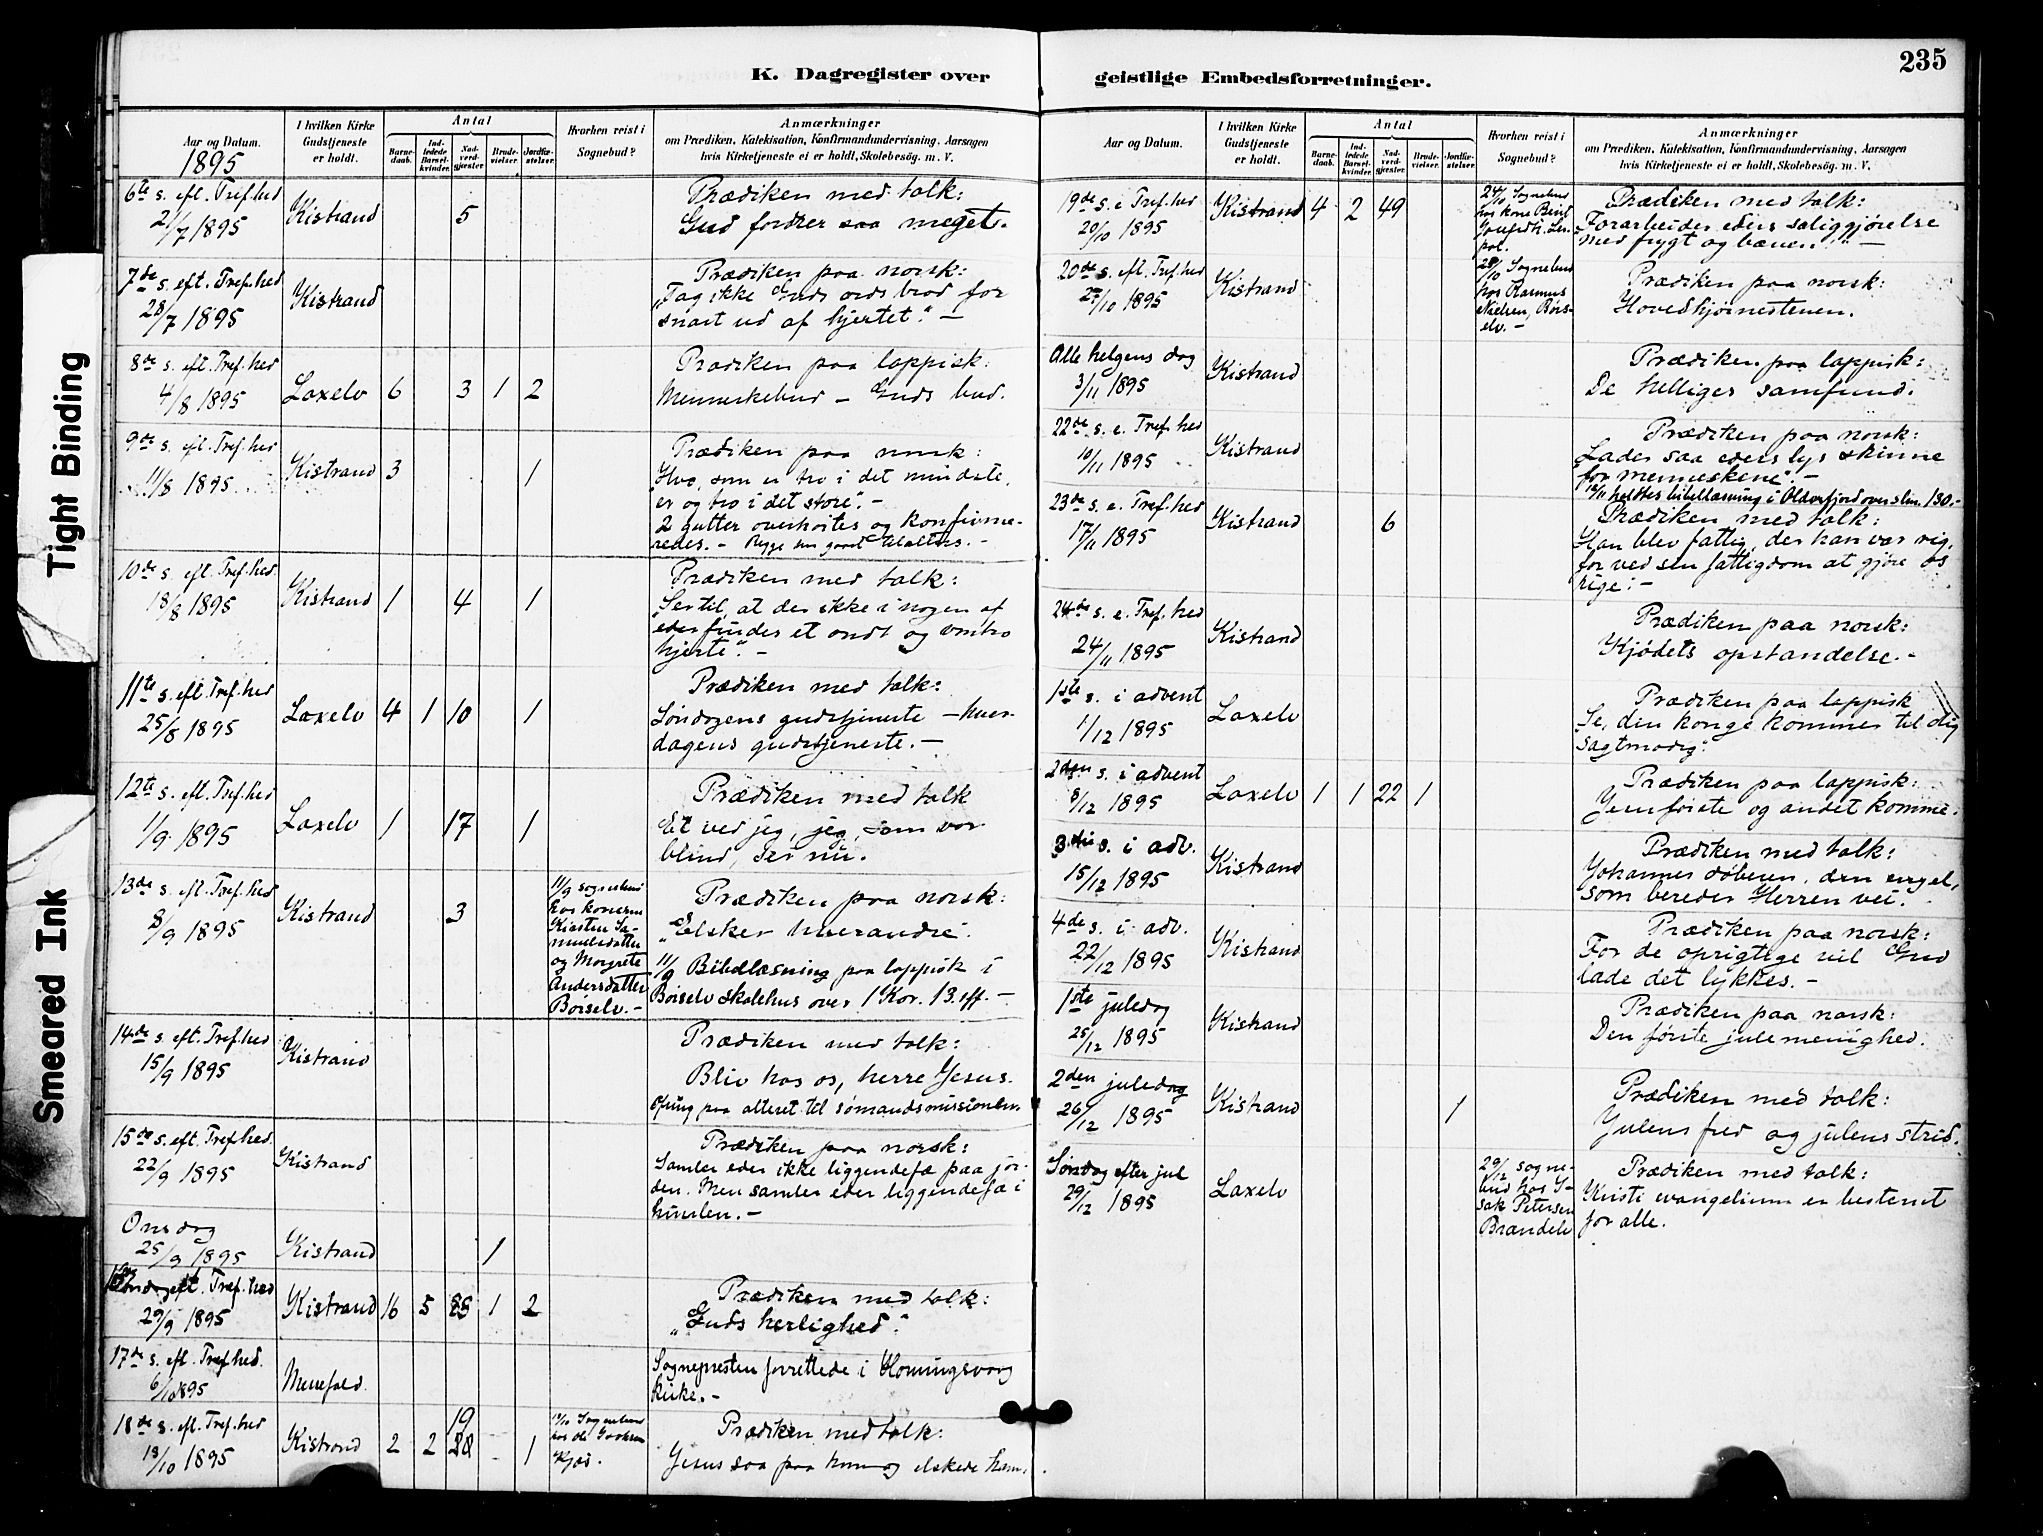 K. Dagregister over
Aar og Datum.
1895
I hvilken Kirke Gudstjeneste er holdt.
Antal
Barnedaab.
Indledede Barselkvinder.
Nadverdgjester.
Brudevielser.
Jordfæstelser.
Hvorhen reist i Sognebud?
Anmærkninger
om Prædiken, Katekisation, Konfirmandundervisning, Aarsagen
hvis Kirketjeneste ei er holdt, Skolebesög. m. V.
6te s. eft. Tref.hed
2/7 1895
Kistrand 5
Prædiken med tolk:
Gud fordrer saa meget.
7de s. eft. Tref.hed
28/7 1895
Kistrand
Prædiken paa norsk:
"Tag ikke Guds ords brod for
snart ud af hjertet." –
8de s. eft. Tref.hed
4/8 1895
Laxelv 6 3 1 2
Prædiken paa lappisk:
Menneskebud – Guds bud.
9de s. eft. Tref.hed
11/8 1895
Kistrand 3 1
Prædiken paa norsk:
"Hvo, som er tro i det mindste,
er og tro i det store". –
2 gutter overhørtes og konfirme-
redes. –
10de s. eft. Tref.hed.
18/8 1895
Kistrand 1 4 1
Prædiken med tolk:
"Ser til, at der ikke i nogen af
eder findes et ondt og vantro
hjerte". –
11te s. eft. Tref.hed
25/8 1895
Laxelv 4 1 10 1
Prædiken med tolk:
Søndagens gudstjeneste – hver-
dagens gudstjeneste. –
12te s. eft. Tref.hed
1/9 1895
Laxelv 1 17 1
Prædiken med tolk
Et ved jeg, jeg, som var
blind, ser nu.
13de s. eft. Tref.hed
8/9 1895
Kistrand 3
11/9 sognebud
hos konerne
Kirsten Sa-
muelsdatter
og Margrete
Andersdatter
Børselv. –
Prædiken paa norsk:
"Elsker hverandre".
11/9 Bibellæsning paa lappisk i
Børselv skolehus over 1 Kor. 13. ff. –
14de s. eft. Tref.hed
15/9 1895
Kistrand
Prædiken med tolk:
Bliv hos os, herre Jesus.
Ofring paa alteret til sømandsmissionen.
15de s. eft. Tref.hed.
22/9 1895
Kistrand
Prædiken paa norsk:
Samler eder ikke liggendefæ paa jor-
den. Men samler eder liggendefæ i
himlen. –
Onsdag
25/9 1895
Kistrand 1
Søndag eft. Tref.hed
29/9 1895
Kistrand 16 5 1 2
Prædiken med tolk:
"Guds herlighed".
17de s. eft. Tref.hed.
6/10 1895
Messefald.
Sognepresten forrettede i Honningsvaag
kirke. –
18de s. eft. Tref.hed
13/10 1895
Kistrand 2 2 19 1
Sognebud
Prædiken med tolk:
Jesus saa paa ham og elskede ham.
geistlige Embedsforretninger.
235
Aar og Datum.
I hvilken Kirke Gudstjeneste er holdt.
Antal
Barnedaab.
Indledede Barselkvinder.
Nadverdgjester.
Brudevielser.
Jordfæstelser.
Hvorhen reist i Sognebud?
Anmærkninger
om Prædiken, Katekisation, Konfirmandundervisning, Aarsagen
hvis Kirketjeneste ei er holdt, Skolebesög. m. V.
19de s. i Tref.hed
20/10 1895
Kistrand 4 2 49
24/10 Sognebud
hos kone Berit
Prædiken med tolk:
"Forarbeider eders saliggjørelse
med frygt og bæven". –
20de s. eft. Tref.hed
27/10 1895
Kistrand
28/10 Sognebud
hos Rasmus
Nielsen, Børs-
elv. –
Prædiken paa norsk:
Hovedhjørnestenen.
Alle helgens dag
3/11 1895
Kistrand
Prædiken paa lappisk:
De helliges samfund.
22de s. e. Tref.hed
10/11 1895
Kistrand
Prædiken paa norsk:
"Lader saa eders lys skinne
for menneskene". –
holdtes bibellæsning i Olderfjord over slm. 130. –
23de s. e. Tref.hed
17/11 1895
Kistrand 6
Prædiken med tolk:
Han blev fattig, der han var rig,
for ved sin fattigdom at gjøre os
rige. –
24de s. e. Tref.hed
24/11 1895
Kistrand
Prædiken paa norsk:
Kjødets opstandelse. –
1ste s. i advent
1/12 1895
Laxelv
Prædiken paa lappisk
"Se, din konge kommer til dig
sagtmodig".
2den s. i advent
8/12 1895
Laxelv 1 1 22 1
Prædiken paa lappisk:
Jesu første og andet komme.
3die s. i adv.
15/12 1895
Kistrand
Prædiken med tolk:
Johannes døberen, den engel,
som bereder Herren vei.
4de s. i adv.
22/12 1895
Kistrand
Prædiken paa norsk:
For de oprigtige vil Gud
lade det lykkes. –
1ste juledag
25/12 1895
Kistrand
Prædiken paa norsk:
Den første julemenighed.
2den juledag
26/12 1895
Kistrand 1
Prædiken med tolk:
Julens fred og julens strid.
Søndag efter jul
29/12 1895
Laxelv
29/12 sogne-
bud hos I-
sak Petersen
Brændelv
Prædiken med tolk:
Kristi evangelium er bestemt
for alle.
Tight Binding
Smeared Ink